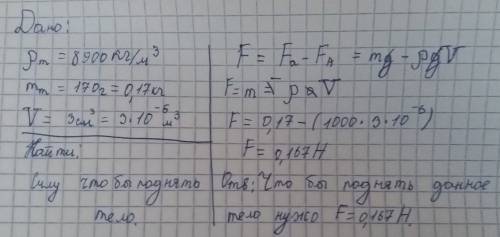 Дано:
ρm = 8900 кг/м³
mm = 170г = 0,17кг
V = 3см³ = 3·10⁻⁶ м³
Найти:
Силу что бы поднять
тело.
F = Fa - FA = mg - ρgV
F = m - ρ V
F = 0,17 - (1000·3·10⁻⁶)
F = 0,167 Н
Отв: Что бы поднять данное
тело нужо F = 0,167 Н.